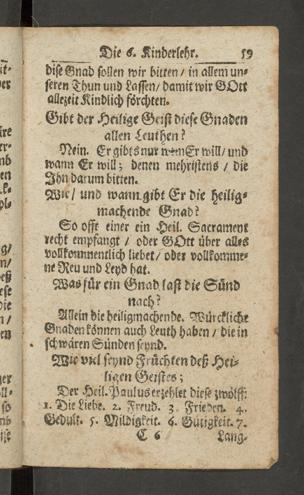 Die 6. Kinderlehr. 59
dise Gnad sollen wir bitten / in allem un-
seren Thun und Lassen / damit wir GOtt
allezeit Kindlich förchten.
Gibt der Heilige Geist diese Gnaden
allen Leuthen?
Nein. Er gibts nur wem Er will / und
wann Er will; denen mehristens / die
Ihn darum bitten.
Wie / und wann gibt Er die heilig-
machende Gnad?
So offt einer ein Heil. Sacrament
recht empfangt / oder GOtt über alles
vollkommentlich liebet / oder vollkomme-
ne Reu und Leyd hat.
Was für ein Gnad last die Sünd
nach?
Allein die heiligmachende. Würckliche
Gnaden können auch Leuth haben / die in
schwären Sünden seynd.
Wie viel seynd Früchten deß Hei-
ligen Geistes;
Der Heil. Paulus erzehlet diese zwölff:
1. Die Liebe. 2. Freud. 3. Frieden. 4.
Gedult. 5. Mildigkeit. 6. Gütigkeit. 7.
C 6 Lang-